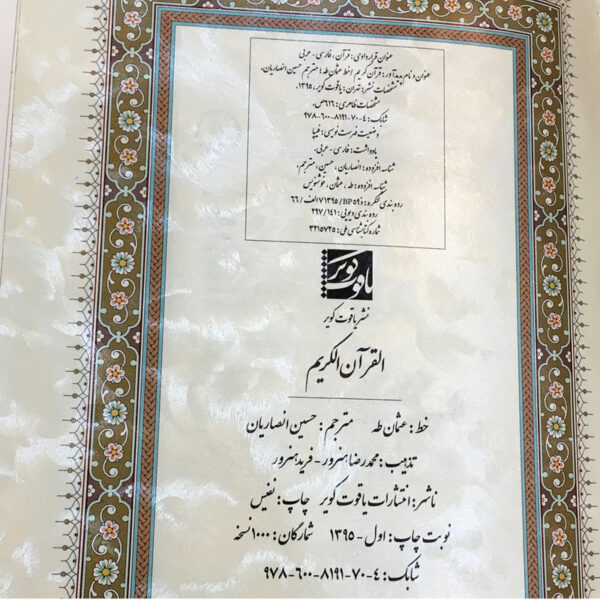 عنوان قراردادی: قرآن، فارسی - عربی
عنوان و نام پدیدآور: قرآن کریم / خط عثمان طه؛ مترجم حسین انصاریان.
مشخصات نشر: تهران: یاقوت کویر، ۱۳۹۵.
مشخصات ظاهری: ۶۱۶ص.
شابک: ۴-۷۰-۸۱۹۱-۶۰۰-۹۷۸
وضعیت فهرست نویسی: فیپا
یادداشت: فارسی - عربی.
شناسه افزوده: انصاریان، حسین، مترجم.
شناسه افزوده: طه، عثمان، خوشنویس
رده بندی کنگره: BP۵۹/۱۳۹۵ ۷الف۶۶/
رده بندی دیویی: ۲۹۷/۱۴۱
شماره کتابشناسی ملی: ۳۲۱۵۷۲۵
یاقوت کویر
نشر یاقوت کویر
القرآن الکریم
خط: عثمان طه مترجم: حسین انصاریان
تذهیب: محمدرضا هنرور - فرید هنرور
ناشر: انتشارات یاقوت کویر چاپ: نفیس
نوبت چاپ: اول - ۱۳۹۵ شمارگان: ۱۰۰۰ نسخه
شابک: ۴-۷۰-۸۱۹۱-۶۰۰-۹۷۸